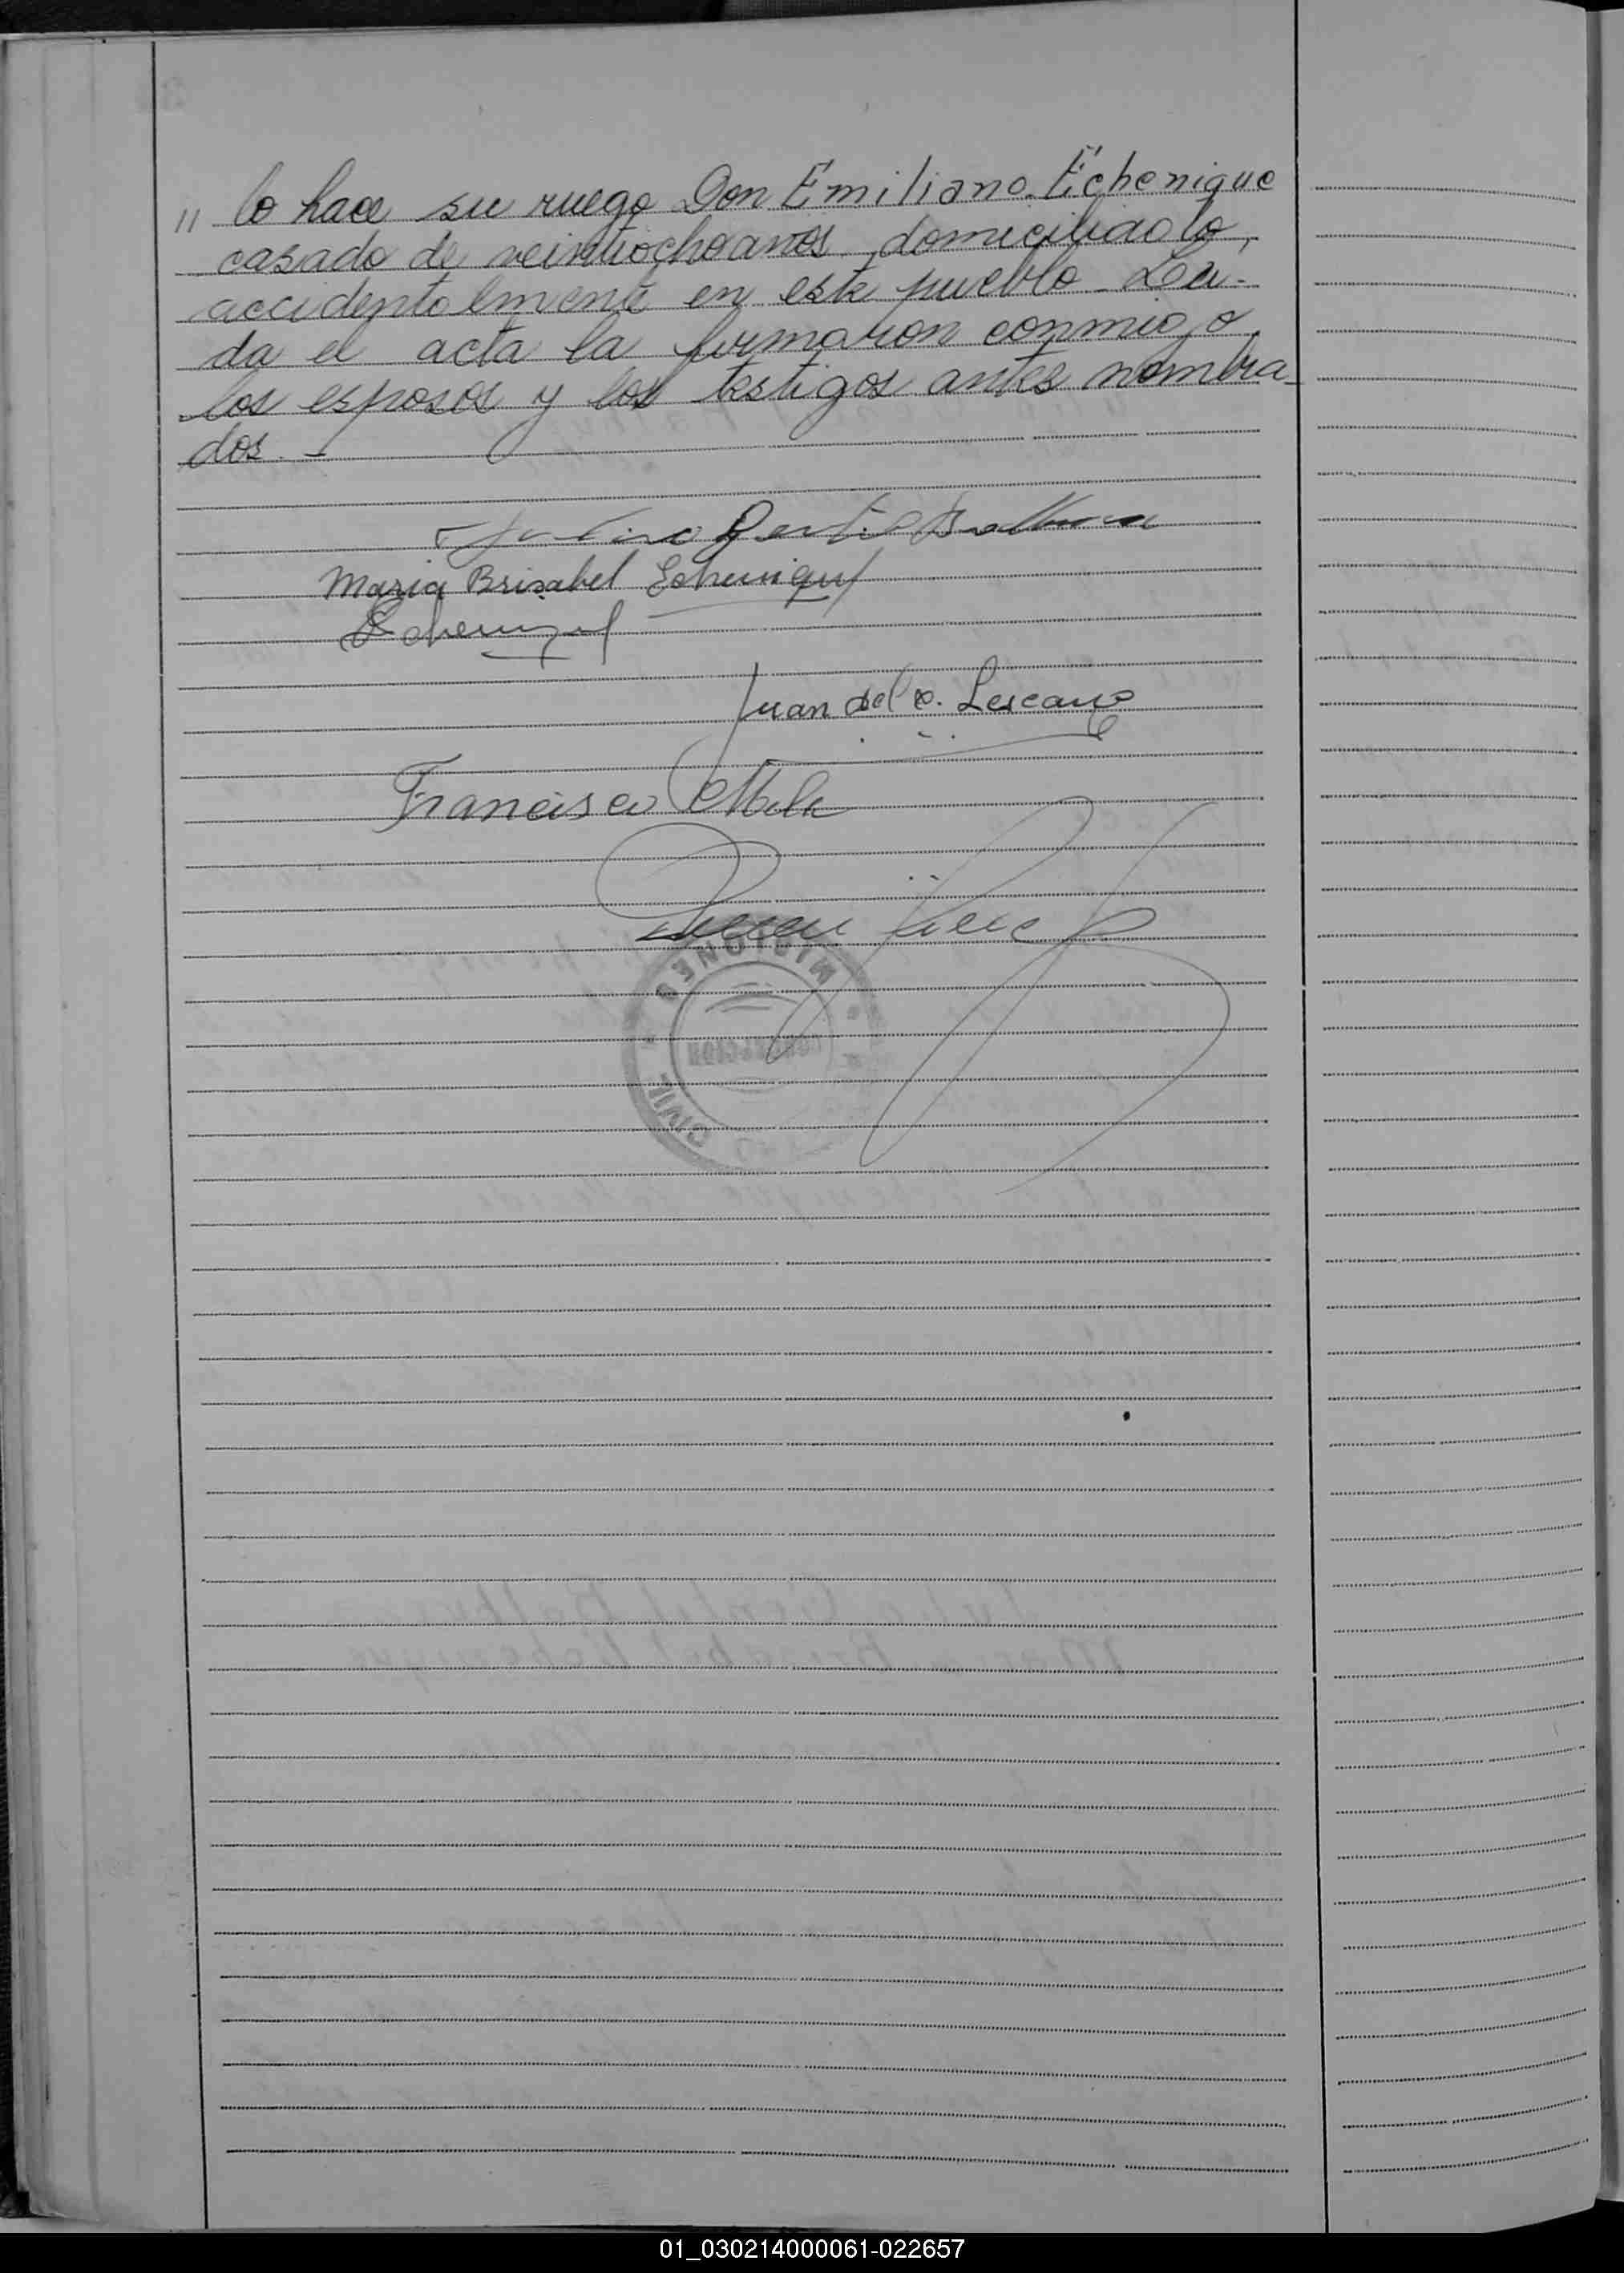 " lo hace su ruego Don Emiliano Echenique
casado de veintiocho años, domiciliado
accidentalmente en este pueblo. Leí-
da el acta la firmaron conmigo
los esposos y los testigos antes nombra-
dos. -
Maria Brisabel Echenique
Echenique
Juan del C. Lescano
Francisco
MISIONES
CONCEPCION
CIVIL
01_030214000061-022657